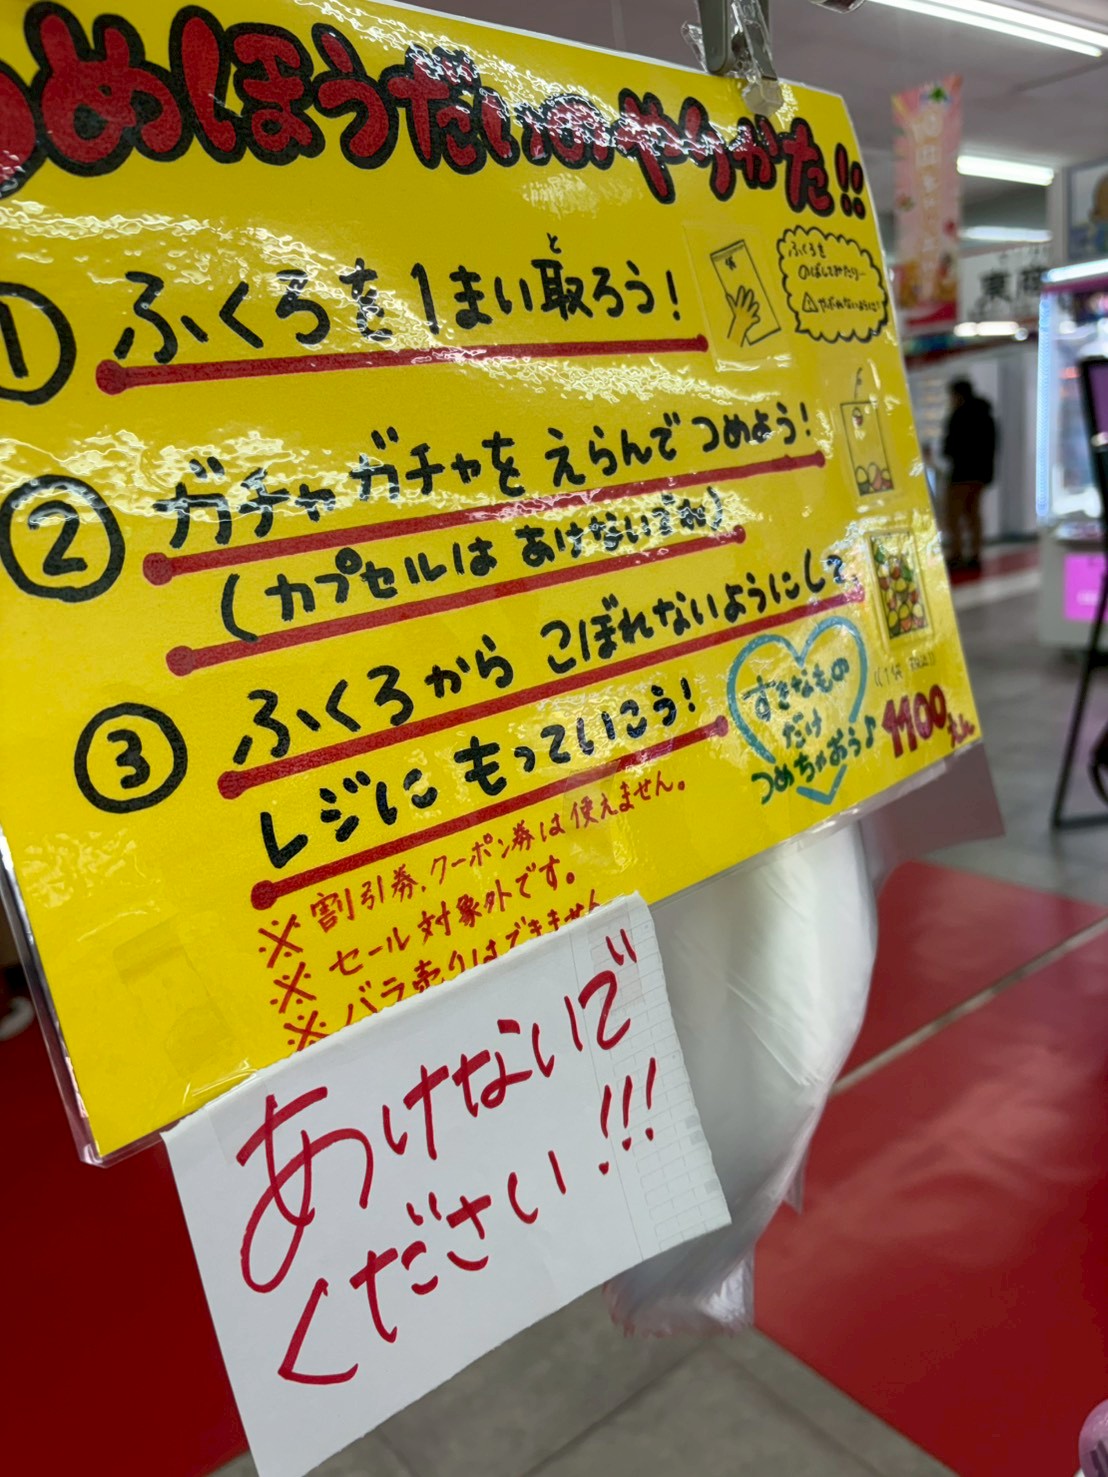 つめほうだいのやりかた!!
① ふくろを1まい取ろう!
と
ふくろを
のばしてやぶったり…
⚠やぶれないように!
② ガチャガチャを えらんで つめよう!
(カプセルは あけないでね)
③ ふくろから こぼれないようにして
レジに もっていこう!
すきなもの
だけ
つめちゃおう♪
1100えん
※ 割引券、クーポン券は使えません。
※ セール対象外です。
※ バラ売りはできません
あけないで
ください!!!